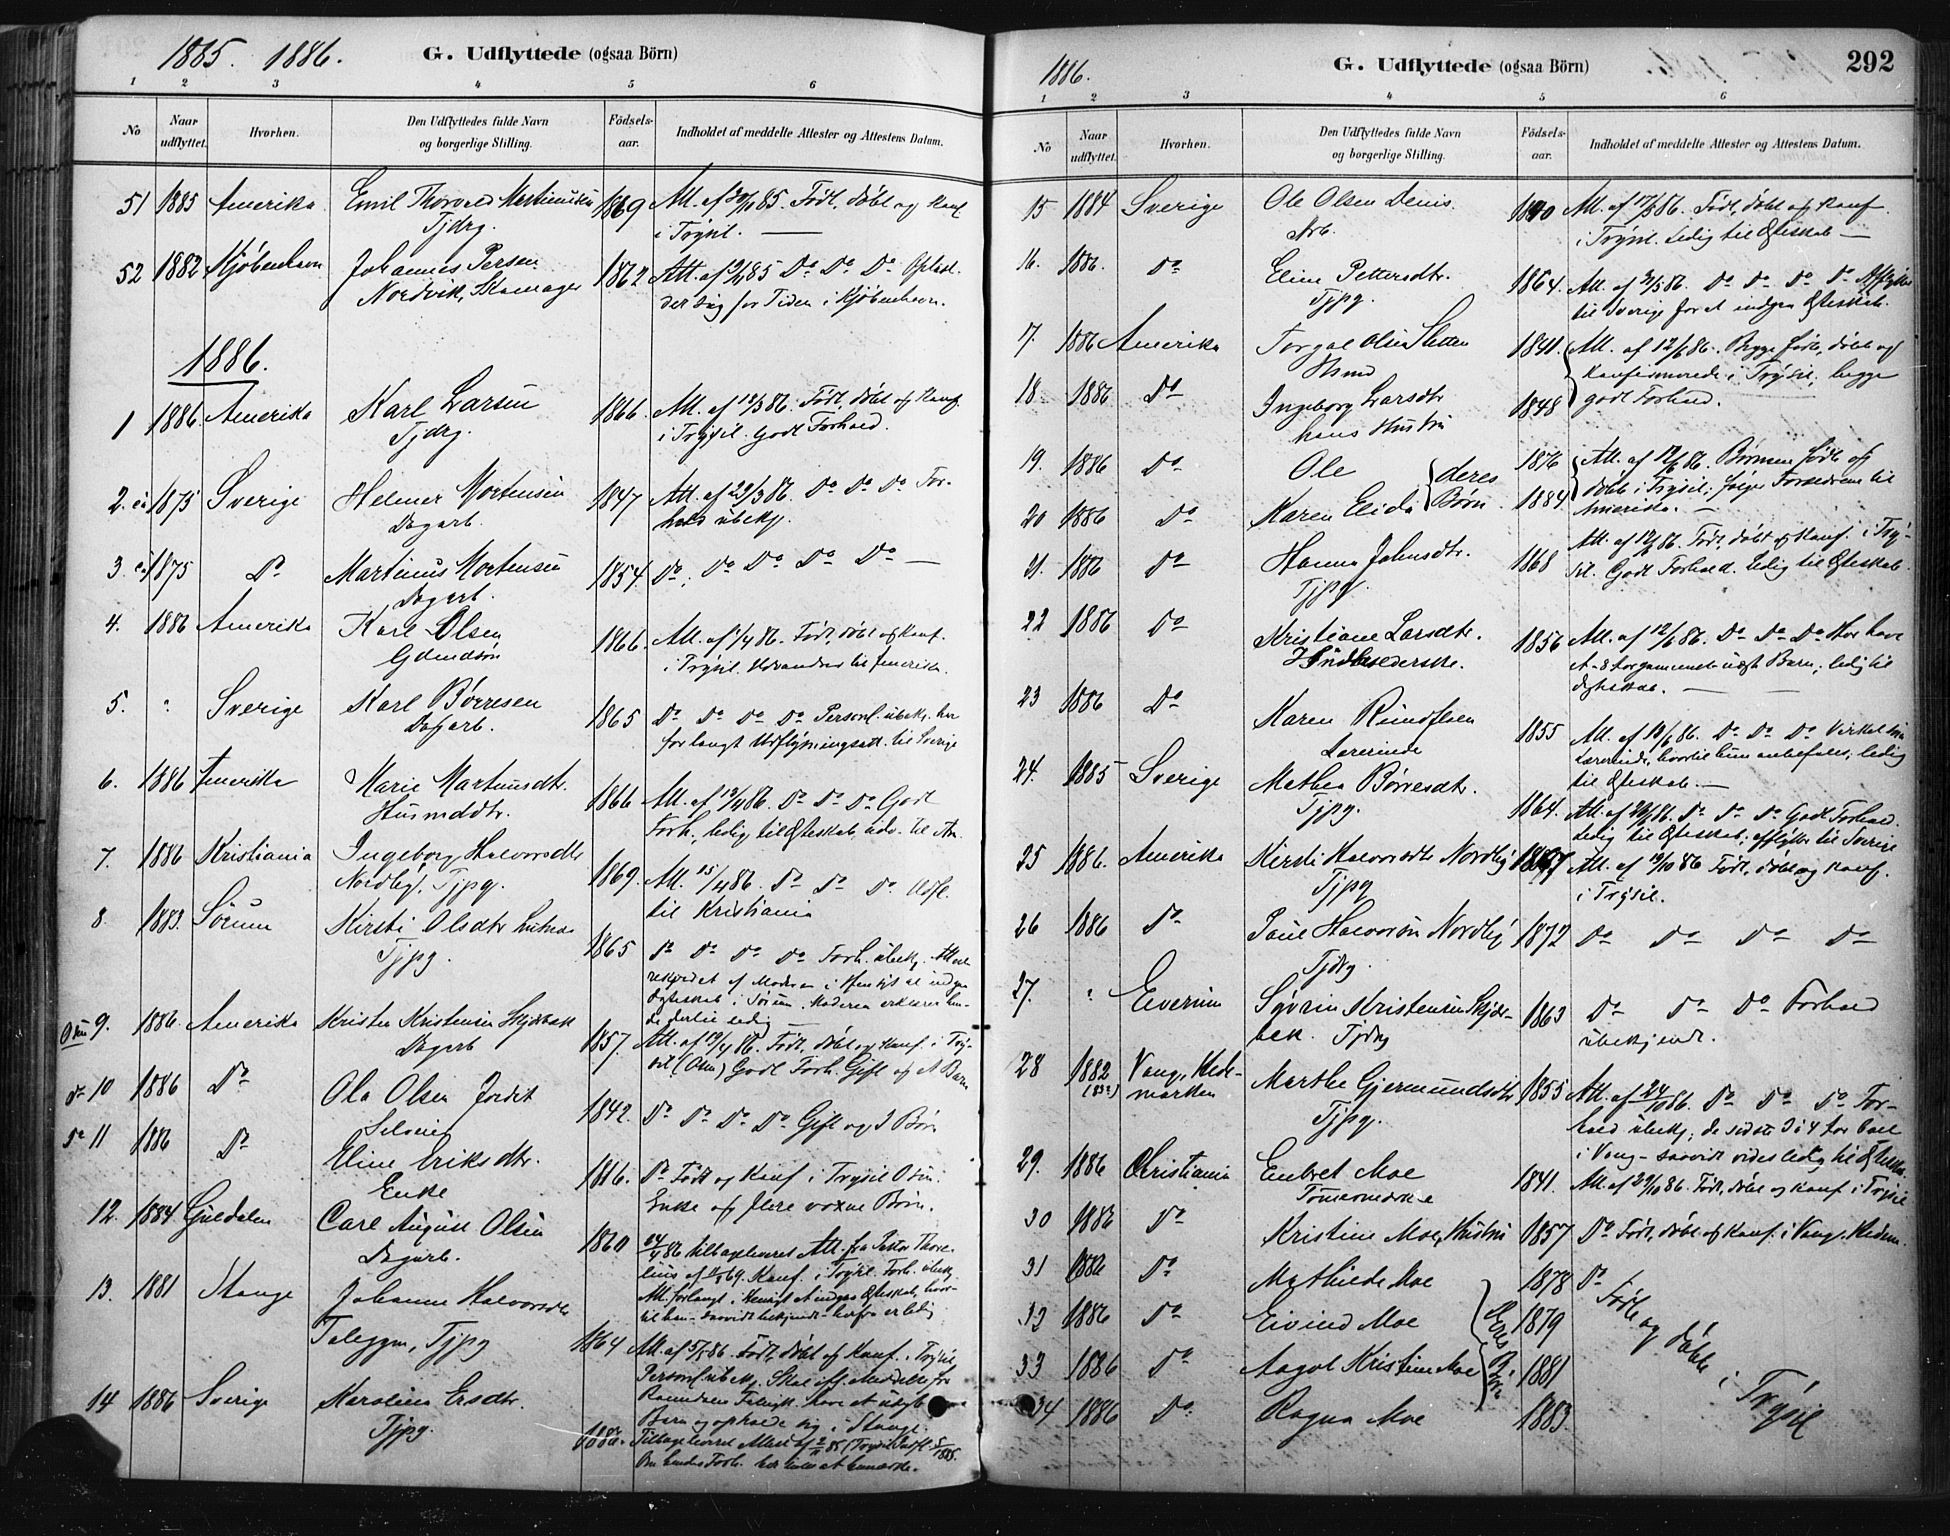 1885. 1886.
G. Udflyttede (ogsaa Börn)
1 2 3 4 5 6
No
Naar udflyttet.
Hvorhen.
Den Udflyttedes fulde Navn
og borgerlige Stilling.
Födsels-
aar.
Indholdet af meddelte Attester og Attestens Datum.
51 1885 Amerika Emil Thorvald Martinusen 1869 Att. af 85. Født, døbt og Konf.
Tjdrg. i Trysil. —
52 1882 Kjøbenhavn Johannes Persen 1862 Att. af 85 Do Do Do Ophol-
Nordvik, Skomager der sig for Tiden i Kjøbenhavn.
1886.
1 1886 Amerika Karl Larsen 1866. Att. af 12/3 86. Født, døbt og Konf.
Tjdrg. i Trysil. Godt Forhold.
2. ca 1875 Sverige Helmer Mortensen 1847 Att. af 22/3 86. Do Do Do For-
Dagarb. hold ubekj.
3. ca 1875 Do Martinus Mortensen 1854. Do, Do Do Do Do —
Dagarb.
4. 1886 Amerika Karl Olsen 1866. Att. af 1/4 86. Født, døbt og Konf.
Gdmdsøn i Trysil. Udvandrer til Amerika.
5. " Sverige Karl Børresen 1865 Do Do Do Do Personl. ubekj. har
Dagarb. forlangt Udflytningsatt. til Sverige
6. 1886 Amerika Marie Martinusdtr. 1866 Att. af 86. Do Do Do Godt
Husmddtr. Forh., ledig til Ægteskab, udv. til Am.
7. 1886 Kristiania Ingeborg Halvorsdtr 1869. Att. 15/4 86. Do Do Do Udfl.
Nordby, Tjpg. til Kristiania
8. 1883. Sørum Kirsti Olsdtr 1865 Do Do Do Do Forh. ubekj. Att.
Tjpg. af Moderen i Hensigt at indgaa
Ægteskab i Sørum. Moderen erklærer hen-
de dertil ledig —
Osen 9. 1886. Amerika Krister Kristensen Skjærbæk 1857. Att. af 86. Født, døbt og Konf. i Try-
Dagarb sil (Osen) Godt Forh. Gift og Børn
do 10 1886 Do Ola Olsen Jordet 1842. Do Do Do Do Gift og 3 Børn
Selveier
Do 11 1886 Do Eline Eriksdtr. 1816. Do Født og Konf. i Trysil Osen.
Enke Enke og flere voxne Børn.
12. 1884 Guldalen Carl August Olsen 1860 86 tilbageleveret Att. fra Pastor
Dagarb. af 69. Konf. i Trysil. Forh. ubekj.
Att. forlangt i Hensigt at indgaa Ægteskab, hvor-
til han saavidt bekjendt herfra er ledig
13. 1881 Stange Johanne Halvorsdtr 1864 Att. af 5/5 86. Født, døbt og Konf. i Trysil
Tjpg Personl. ubekj.
Barn og opholde sig i Stange.
14 1886 Sverige Karoline Ersdtr. Tilbageleveret Attest af 85 (Trysil Indfl. 5/1885.
Tjpg. Om hendes Forh. her intet at bemærke.
1886.
G. Udflyttede (ogsaa Börn)
292
1 2 3 4 5 6
No
Naar udflyttet.
Hvorhen.
Den Udflyttedes fulde Navn
og borgerlige Stilling.
Födsels-
aar.
Indholdet af meddelte Attester og Attestens Datum.
15 1884 Sverige Ole Olsen Denis. 1840 Att. af 17/5 86. Født, døbt og Konf.
Arb. i Trysil. Ledig til Ægteskab —
16. 1886. Do Eline Pettersdtr. 1864. Att. af 86. Do Do Do Do Afflytter
Tjpg. til Sverige for at indgaa Ægteskab.
17. 1886 Amerika Torgal Olsen Sletten 1841. Att. af 12/6 86. Begge født, døbt og
Hsmd konfirmerede i Trysil, begge
18. 1886 Do Ingeborg Larsdtr 1848 godt Forhold.
hans Hustru
19. 1886 Do Ole 1876 Att. af 12/6 86. Børnene født og
deres Børn døbt i Trysil, følger Forældrene til
20 1886 Do Karen Elida 1884 Amerika. —
21. 1886 Do Hanna Johnsdtr. 1868 Att. af 12/6 86. Født, døbt og Konf. i Try-
Tjpg. sil. Godt Forhold. Ledig til Ægteskab.
22 1886 Do Kristiane Larsdtr. 1856 Att. af 12/6 86. Do Do Do Har havt
Barn, ledig til
Ægteskab. —
23 1886 Do Karen Rundfloen 1855 Att. af 86. Do Do Do Virket som
Lærerinde Lærerinde, hvortil hun anbefales, ledig
til Ægteskab. —
24. 1885 Sverige Mathea Børresdtr. 1864. Att. af 86. Do Do Do Godt Forhold.
Tjpg. Ledig til Ægteskab, afflytter til Sverige
25 1886. Amerika Kirsti Halvorsdtr Nordby Att. af 19/10 86 Født, døbt og Konf.
Tjpg i Trysil.
26 1886 Do Paul Halvorsen Nordby 1872 Do Do Do Do
Tjdrg.
27. " Elverum Syvrin Kristensen Skjær- 1863 Do Do Do Forhold
bæk. Tjdrg ubekjendt.
28 1882 Vang, Hede- Marthe Gjermundsdtr 1855 Att. af 24/10 86. Do Do Do For-
marken Tjpg. hold ubekj; de sidste 3 à 4 Aar boet
i Vang — saavidt vides ledig til Ægteskab.
29. 1886 Christiania Embret Moe 1841. Att. af 29/10 86. Født, døbt og Konf. i Trysil
Tømmermærker
30 1886 Do Kristine Moe, Hustru 1857 Do Født, døbt og Konf. i Vang, Hedem.
31 1886 Do Mathilde Moe 1878 Do
32 1886 Do Eivind Moe 1879
33 1886 Do Aagot Kristine Moe 1881
34 1886 Do Ragna Moe 1883.
Deres Børn
Født og døbt i Trysil